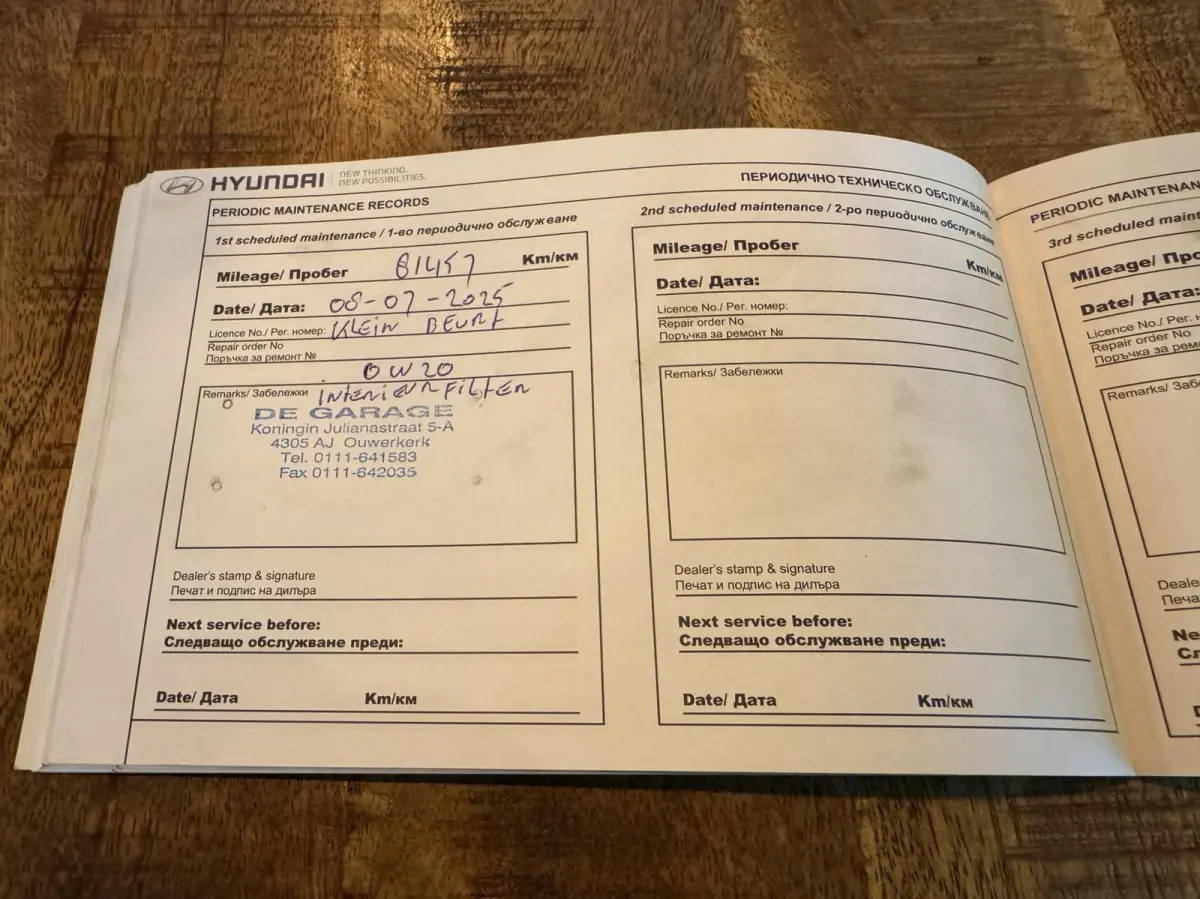 HYUNDAI
NEW THINKING.
NEW POSSIBILITIES.
PERIODIC MAINTENANCE RECORDS
ПЕРИОДИЧНО ТЕХНИЧЕСКО ОБСЛУЖВАНЕ
1st scheduled maintenance / 1-во периодично обслужване
Mileage/ Пробег 81457 Km/км
Date/ Дата: 08-07-2025
Licence No./ Рег. номер: KLEIN BEURT
Repair order No
Поръчка за ремонт №
0W20
Remarks/ Забележки INTERIEURFILTER
DE GARAGE
Koningin Julianastraat 5-A
4305 AJ Ouwerkerk
Tel. 0111-641583
Fax 0111-642035
Dealer's stamp & signature
Печат и подпис на дилъра
Next service before:
Следващо обслужване преди:
Date/ Дата Km/км
2nd scheduled maintenance / 2-ро периодично обслужване
Mileage/ Пробег
Km/км
Date/ Дата:
Licence No./ Рег. номер:
Repair order No
Поръчка за ремонт №
Remarks/ Забележки
Dealer's stamp & signature
Печат и подпис на дилъра
Next service before:
Следващо обслужване преди:
Date/ Дата Km/км
PERIODIC MAINTENAN
3rd scheduled maint
Mileage/ Про
Date/ Дата:
Licence No./ Рег. номер:
Repair order No
Поръчка за ремо
Remarks/ Забе
Deale
Печа
Ne
Сл